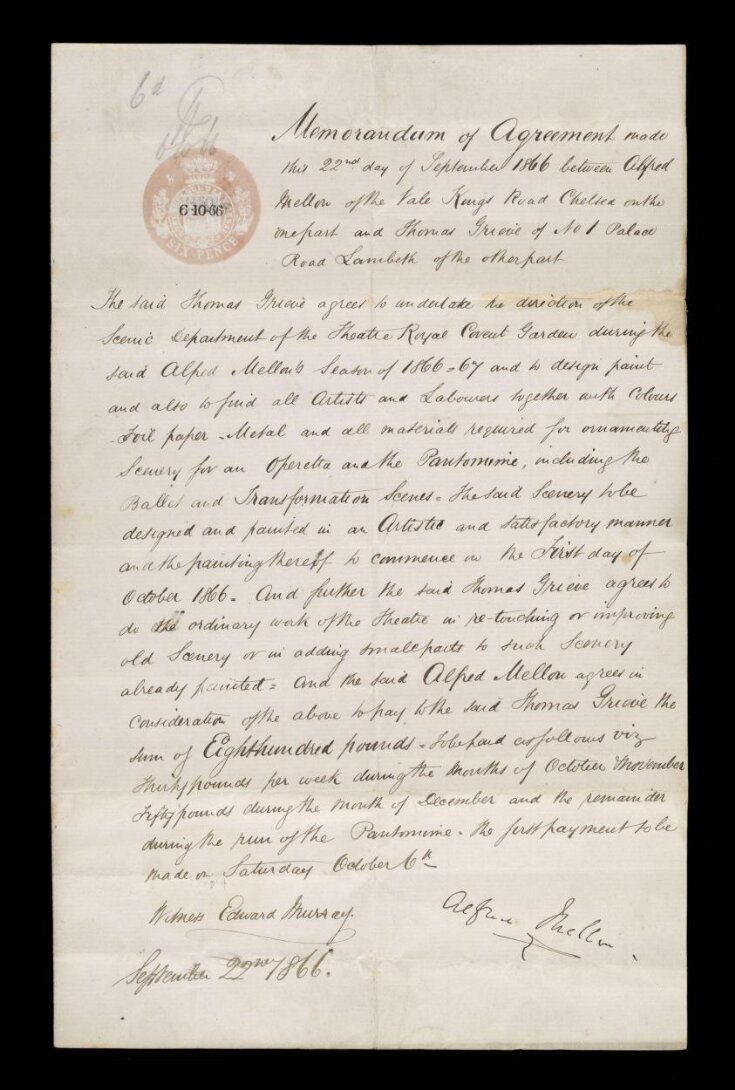 6d
6-10-66
SIX PENCE
Memorandum of Agreement made
this 22nd day of September 1866 between Alfred
Mellon of the Vale Kings Road Chelsea on the
one part and Thomas Grieve of No 1 Palace
Road Lambeth of the other part
The said Thomas Grieve agrees to undertake the direction of the
Scenic Department of the Theatre Royal Covent Garden during the
said Alfred Mellon's Season of 1866-67 and to design paint
and also to find all Artists and Labourers together with Colours
- Foil paper - Metal and all materials required for ornamenting
Scenery for an Operetta and the Pantomime, including the
Ballet and Transformation Scenes = The said Scenery to be
designed and painted in an Artistic and satisfactory manner
and the painting thereof to commence on the First day of
October 1866 = And further the said Thomas Grieve agrees to
do the ordinary work of the Theatre in re-touching or improving
old Scenery or in adding small parts to such Scenery
already painted = And the said Alfred Mellon agrees in
consideration of the above to pay to the said Thomas Grieve the
sum of Eighthundred pounds - to be paid as follows viz
Thirty pounds per week during the Months of October November
Fifty pounds during the Month of December and the remainder
during the run of the Pantomime - the first payment to be
made on Saturday October 6th
Witness Edward Murray.
Alfred Mellon.
September 22nd 1866.